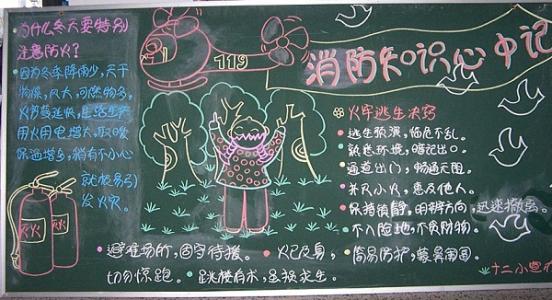 为什么冬天要特别
注意防火?
•因为冬季降雨少,天干
物燥,风大,可燃物多,
火势蔓延快,且冬天
用火用电增大,取暖
保温增多,稍有不小心
就很易引
发火灾。
灭火
灭火
119
消防知识心中记
火灾逃生决窍
•逃生预演,临危不乱。
•熟悉环境,暗记出口。
•通道出门,畅通无阻。
•扑灭小火,惠及他人。
•保持镇静,明辨方向,迅速撤离。
•不入险地,不贪财物。
•避难场所,固守待援。 •火已及身,切勿惊跑。
•简易防护,蒙鼻匍匐。
•跳楼有术,虽损求生。
十二小